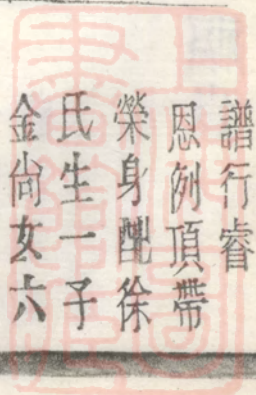 譜行睿
恩例頂帶
榮身配徐
氏生一子
金尙女六